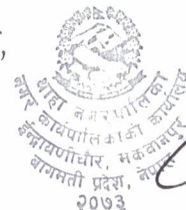 थाहा नगरपालिका
नगर कार्यपालिकाको कार्यालय
इन्द्रायणीचौर, मकवानपुर
बागमती प्रदेश, नेपाल
२०७३